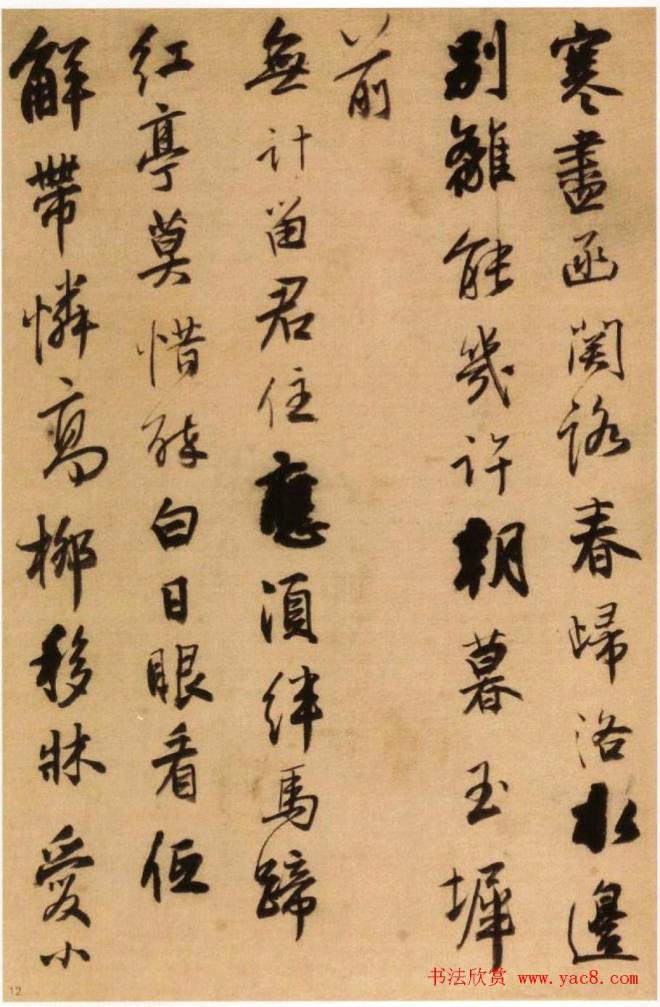 寒盡函関路春歸洛水邊
别離能幾許朝暮玉墀
前
無計留君住應須絆馬蹄
紅亭莫惜醉白日眼看低
解帶憐高柳移牀愛小
12
书法欣赏 www.yac8.com